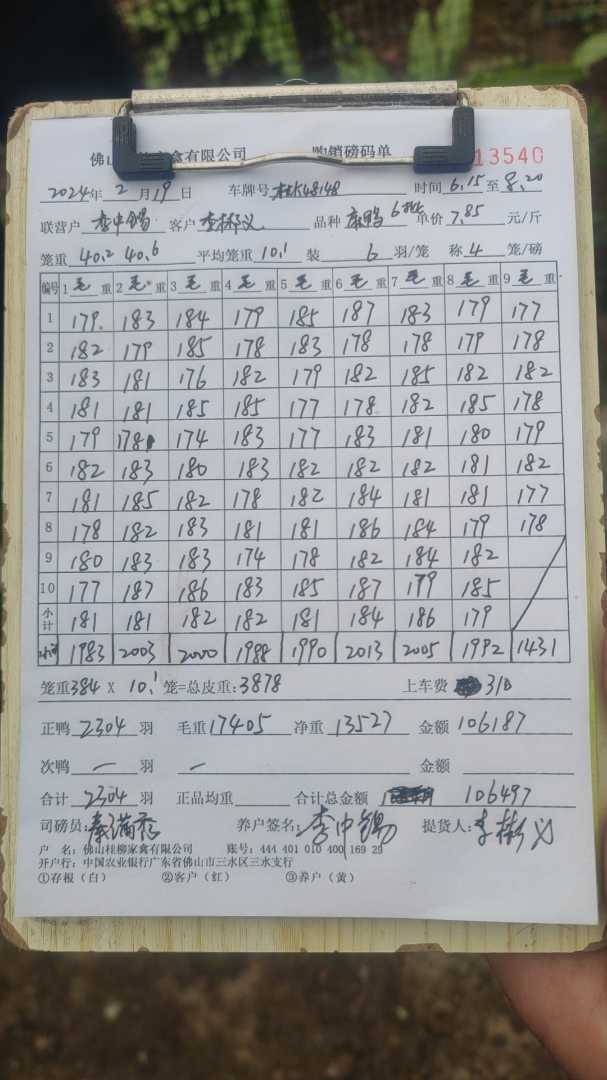 佛山 家禽有限公司 购销磅码单 13540
2024年 2月19日 车牌号 桂K48148 时间 6.15至8.20
联营户 李中锡 客户 李彬义 品种 麻鸭 单价 7.85 元/斤
笼重 40.2 40.6 平均笼重 10.1 装 6 羽/笼 称 4 笼/磅
编号 1 毛重 2 毛重 3 毛重 4 毛重 5 毛重 6 毛重 7 毛重 8 毛重 9 毛重
1 179 183 184 179 185 187 183 179 177
2 182 179 185 178 183 178 178 179 178
3 183 181 176 182 179 182 185 182 182
4 181 181 185 185 177 178 182 185 178
5 179 178 174 183 177 183 181 180 179
6 182 183 180 183 182 182 182 181 182
7 181 185 182 178 182 184 181 181 177
8 178 182 183 181 181 186 184 179 178
9 180 183 183 174 178 182 184 182
10 177 187 186 183 185 187 179 185
小计 181 181 182 182 181 184 186 179
小计 1983 2003 2000 1988 1990 2013 2005 1992 1431
笼重 384 X 10.1 笼=总皮重: 3878 上车费 310
正鸭 2304 羽 毛重 17405 净重 13527 金额 106187
次鸭 — 羽 — 金额
合计 2304 羽 正品均重 合计总金额 106497
司磅员: 养户签名: 李中锡 提货人: 李彬义
户 名: 佛山桂柳家禽有限公司 账号: 444 401 010 400 169 29
开户行: 中国农业银行广东省佛山市三水区三水支行
①存根（白） ②客户（红） ③养户（黄）